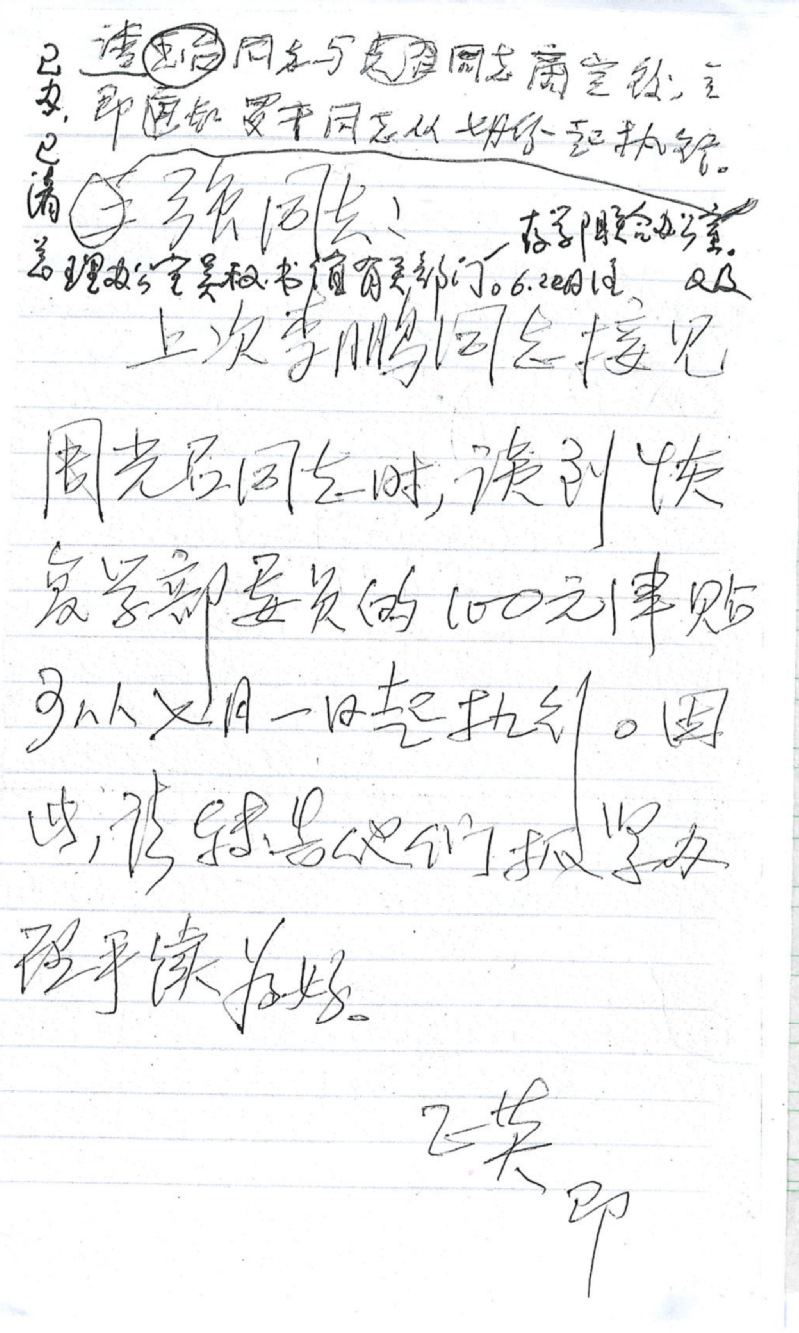 请 同志与 同志商定后,立
即通知罗干同志从七月份一起执行。
已办,已请
强同志:
存学部联合办公室。
总理办公室吴秘书 有关部门。6.22日
上次李鹏同志接见
周光召同志时,谈到恢
复学部委员的100元津贴
可从七月一日起执行。因
此,请转告他们抓紧办
理手续为好。